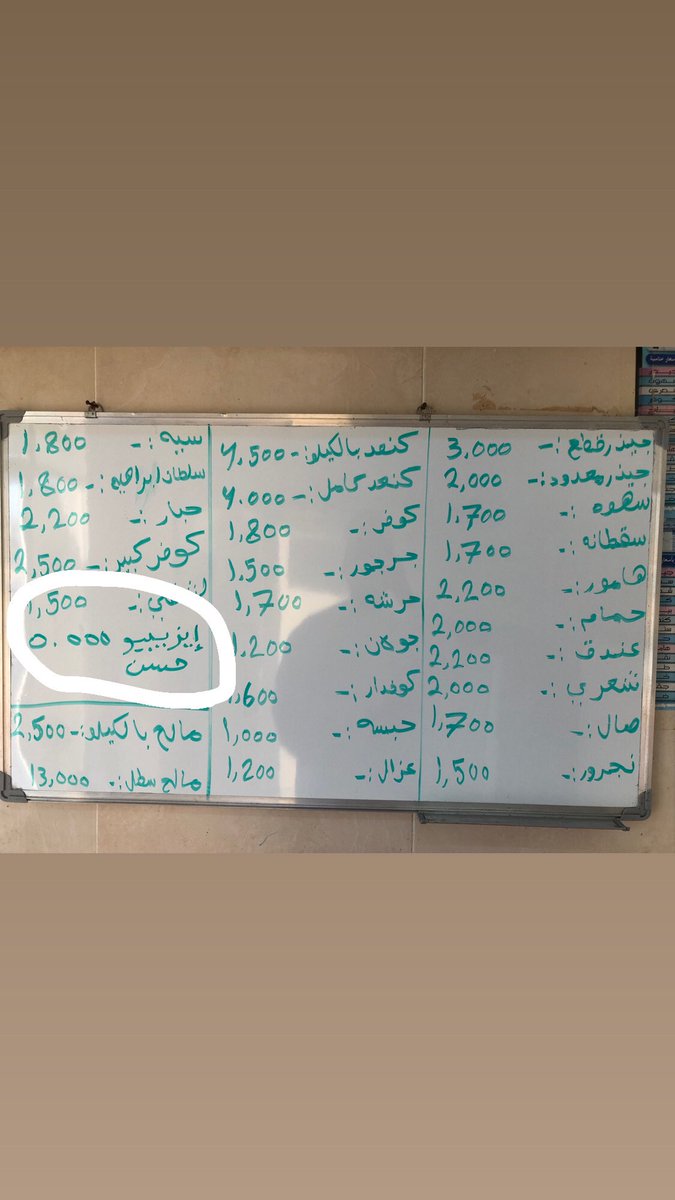 جيذر قطع :- 3,000
جيذر معدود :- 2,000
سهوه :- 1,700
سقطانه :- 1,700
هامور :- 2,200
حمام :- 2,000
عندق :- 2,200
شعري :- 2,000
صال :- 1,700
نجرور :- 1,500
كنعد بالكيلو :- 4,500
كنعد كامل :- 4.000
كوفر :- 1,800
جرجور :- 1,500
حرشه :- 1,700
:- 1,200
كوفدار :- 1,600
حبسه :- 1,000
عزال :- 1,200
سيه :- 1,800
سلطان ابراهيم :- 1,800
جبار :- 2,200
كوفر كبير :- 2,500
:- 1,500
إيزيبيو 0.000
حسن
مالح بالكيلو :- 2,500
مالح سطل :- 13,000